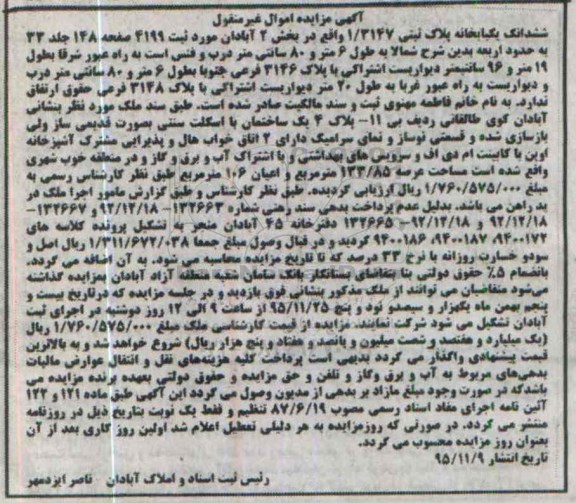 آگهی مزایده اموال غیرمنقول
ششدانگ یکبابخانه پلاک ثبتی ۱/۳۱۴۷ واقع در بخش ۲ آبادان مورد ثبت ۴۱۹۹ صفحه ۱۴۸ جلد ۳۳
به حدود اربعه بدین شرح شمالا به طول ۶ متر و ۸۰ سانتی متر درب و فنس است به راه عبور شرقا بطول
۱۹ متر و ۹۶ سانتیمتر دیواریست اشتراکی با پلاک ۳۱۴۶ فرعی جنوبا بطول ۶ متر و ۸۰ سانتی متر درب
و دیواریست به راه عبور غربا به طول ۲۰ متر دیواریست اشتراکی با پلاک ۳۱۴۸ فرعی حقوق ارتفاق
ندارد. به نام خانم فاطمه مهنوی ثبت و سند مالکیت صادر شده است. طبق سند ملک مورد نظر بنشانی
آبادان کوی طالقانی ردیف بی ۱۱- پلاک ۴ یک ساختمان با اسکلت سنتی بصورت قدیمی ساز ولی
بازسازی شده و قسمتی نوساز و نمای سرامیک دارای ۲ اتاق خواب هال و پذیرایی مشترک آشپزخانه
اوپن با کابینت ام دی اف و سرویس های بهداشتی و با اشتراک آب و برق و گاز و در منطقه خوب شهری
واقع شده است مساحت عرصه ۱۳۳/۸۵ مترمربع و اعیان ۱۰۶ مترمربع طبق نظر کارشناس رسمی به
مبلغ ۱/۷۶۰/۵۷۵/۰۰۰ ریال ارزیابی گردیده. طبق نظر کارشناس و طبق گزارش مامور اجرا ملک در
ید راهن می باشد. بدلیل عدم پرداخت بدهی سند رهنی شماره ۱۳۴۶۶۳- ۹۲/۱۲/۱۸ و ۱۳۴۶۶۷-
۹۲/۱۲/۱۸ و ۱۳۴۶۶۵ -۹۲/۱۲/۱۸ دفترخانه ۴۵ آبادان منجر به تشکیل پرونده کلاسه های
۹۴۰۰۱۷۲، ۹۴۰۰۱۸۷، ۹۴۰۰۱۸۶ گردید و در قبال وصول مبلغ جمعا ۱/۳۱۱/۶۷۲/۰۳۸ ریال اصل و
سودو خسارت روزانه با نرخ ۳۳ درصد که تا تاریخ مزایده محاسبه می شود. به آن اضافه می گردد.
بانضمام ۵٪ حقوق دولتی بنا بتقاضای بستانکار بانک سامان شعبه منطقه آزاد آبادان بمزایده گذاشته
می‌شود متقاضیان می توانند از ملک مذکور بنشانی فوق بازدید و در جلسه مزایده که درتاریخ بیست و
پنجم بهمن ماه یکهزار و سیصدو نود و پنج ۹۵/۱۱/۲۵ از ساعت ۹ الی ۱۲ روز دوشنبه در اجرای ثبت
آبادان تشکیل می شود شرکت نمایند. مزایده از قیمت کارشناسی ملک مبلغ ۱/۷۶۰/۵۷۵/۰۰۰ ریال
(یک میلیارد و هفتصد و شصت میلیون و پانصد و هفتاد و پنج هزار ریال) شروع خواهد شد و به بالاترین
قیمت پیشنهادی واگذار می گردد بدیهی است پرداخت کلیه هزینه‌های نقل و انتقال عوارض مالیات
بدهی‌های مربوط به آب و برق وگاز و تلفن و حق مزایده و حقوق دولتی بعهده برنده مزایده می
باشدکه در صورت وجود مبلغ مازاد بر بدهی از مدیون وصول می گردد این آگهی طبق ماده ۱۲۱ و ۱۲۲
آئین نامه اجرای مفاد اسناد رسمی مصوب ۸۷/۶/۱۹ تنظیم و فقط یک نوبت بتاریخ ذیل در روزنامه
منتشر می گردد. در صورتی که روزمزایده به هر دلیلی تعطیل اعلام شد اولین روز کاری بعد از آن
بعنوان روز مزایده محسوب می گردد.
تاریخ انتشار ۹۵/۱۱/۹
رئیس ثبت اسناد و املاک آبادان - ناصر ایزدمهر